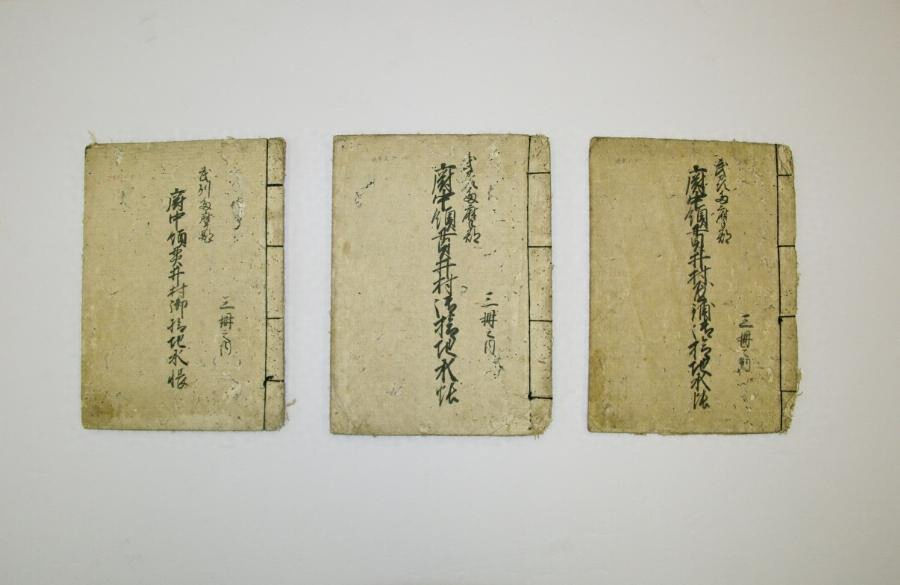 武州多摩郡
府中領貫井村御検地水帳
三冊之内
武州多摩郡
府中領貫井村御検地水帳
三冊之内
武州多摩郡
府中領貫井村御検地水帳
三冊之内